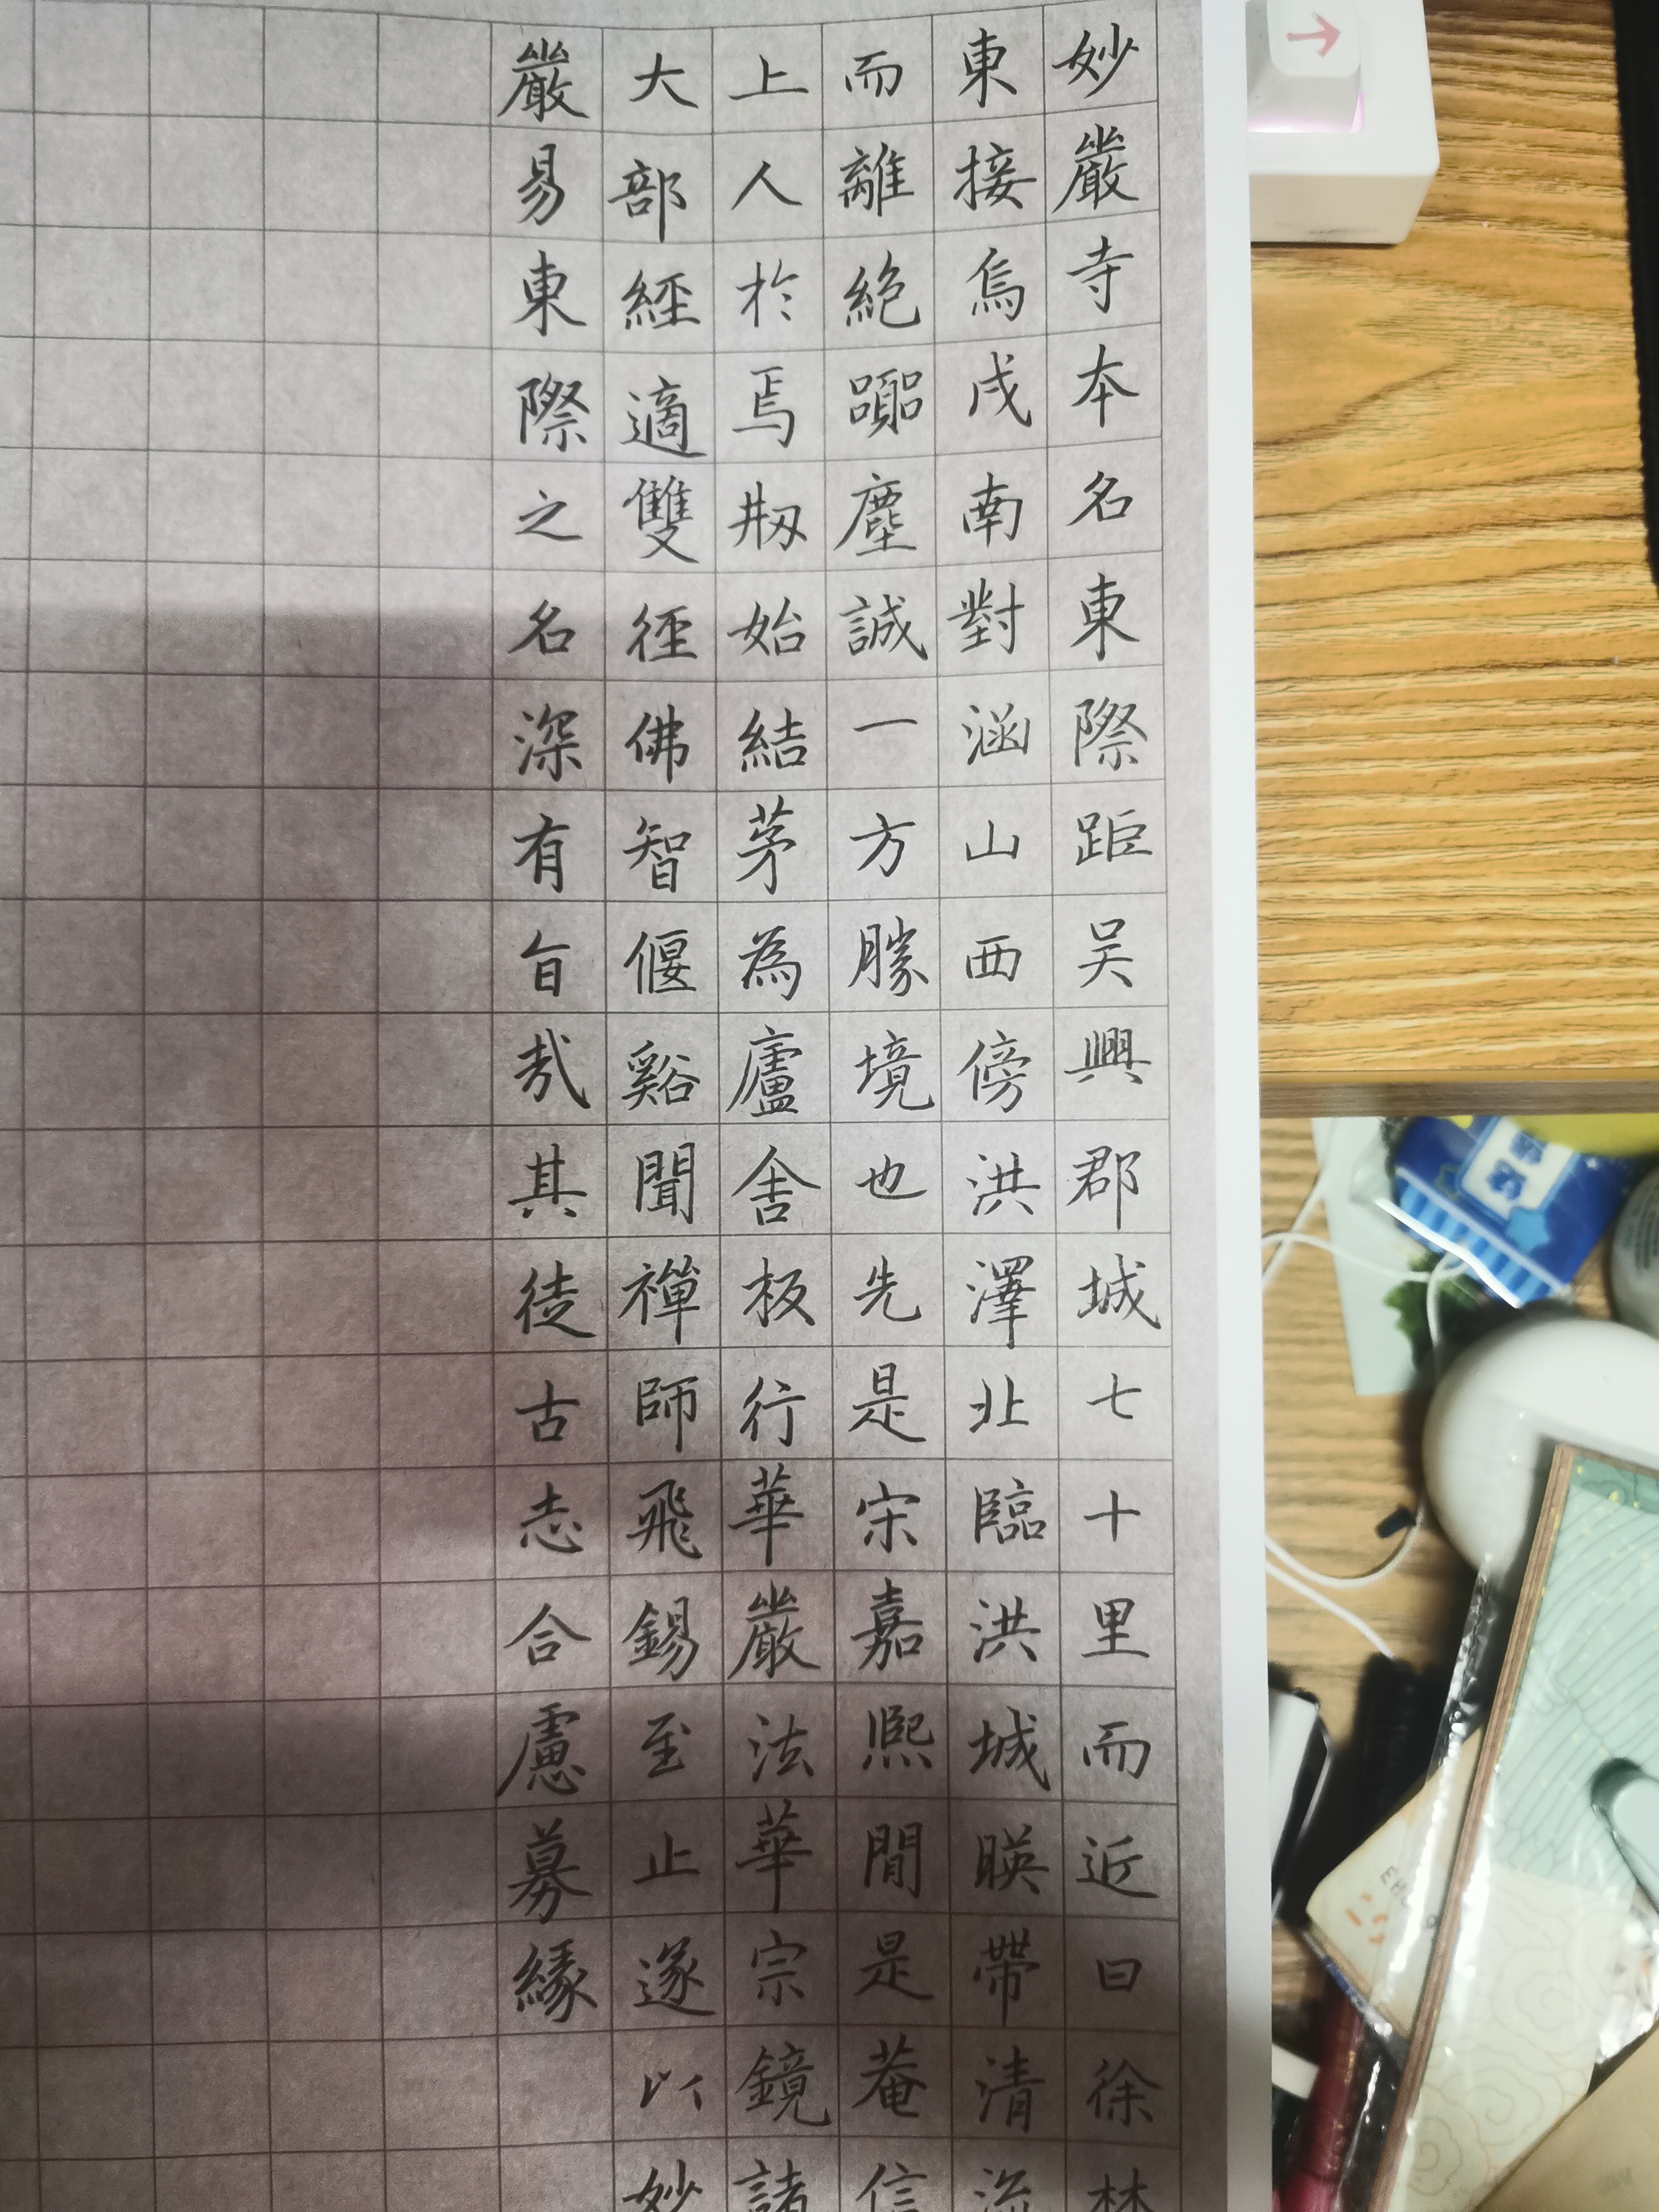 妙嚴寺本名東際距吴興郡城七十里而近曰徐林
東接烏戍南對涵山西傍洪澤北臨洪城暎帶清流
而離絶囂塵誠一方勝境也先是宋嘉熙間是菴信
上人於焉剏始結茅為廬舍板行華嚴法華宗鏡諸
大部經適雙徑佛智偃谿聞禪師飛錫至止遂以妙
嚴易東際之名深有旨哉其徒古志合慮募緣